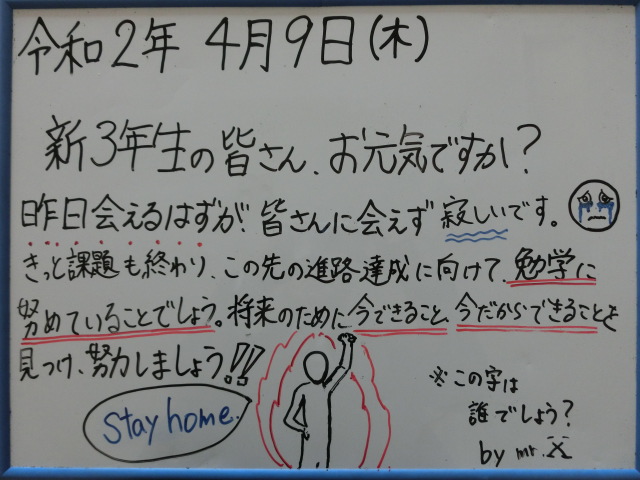 令和2年 4月9日(木)
新3年生の皆さん、お元気ですか？
昨日会えるはずが、皆さんに会えず寂しいです。
きっと課題も終わり、この先の進路達成に向けて、勉学に
努めていることでしょう。将来のために今できること、今だからできることを
見つけ、努力しましょう!!
stay home.
※この字は
誰でしょう？
by mr. X